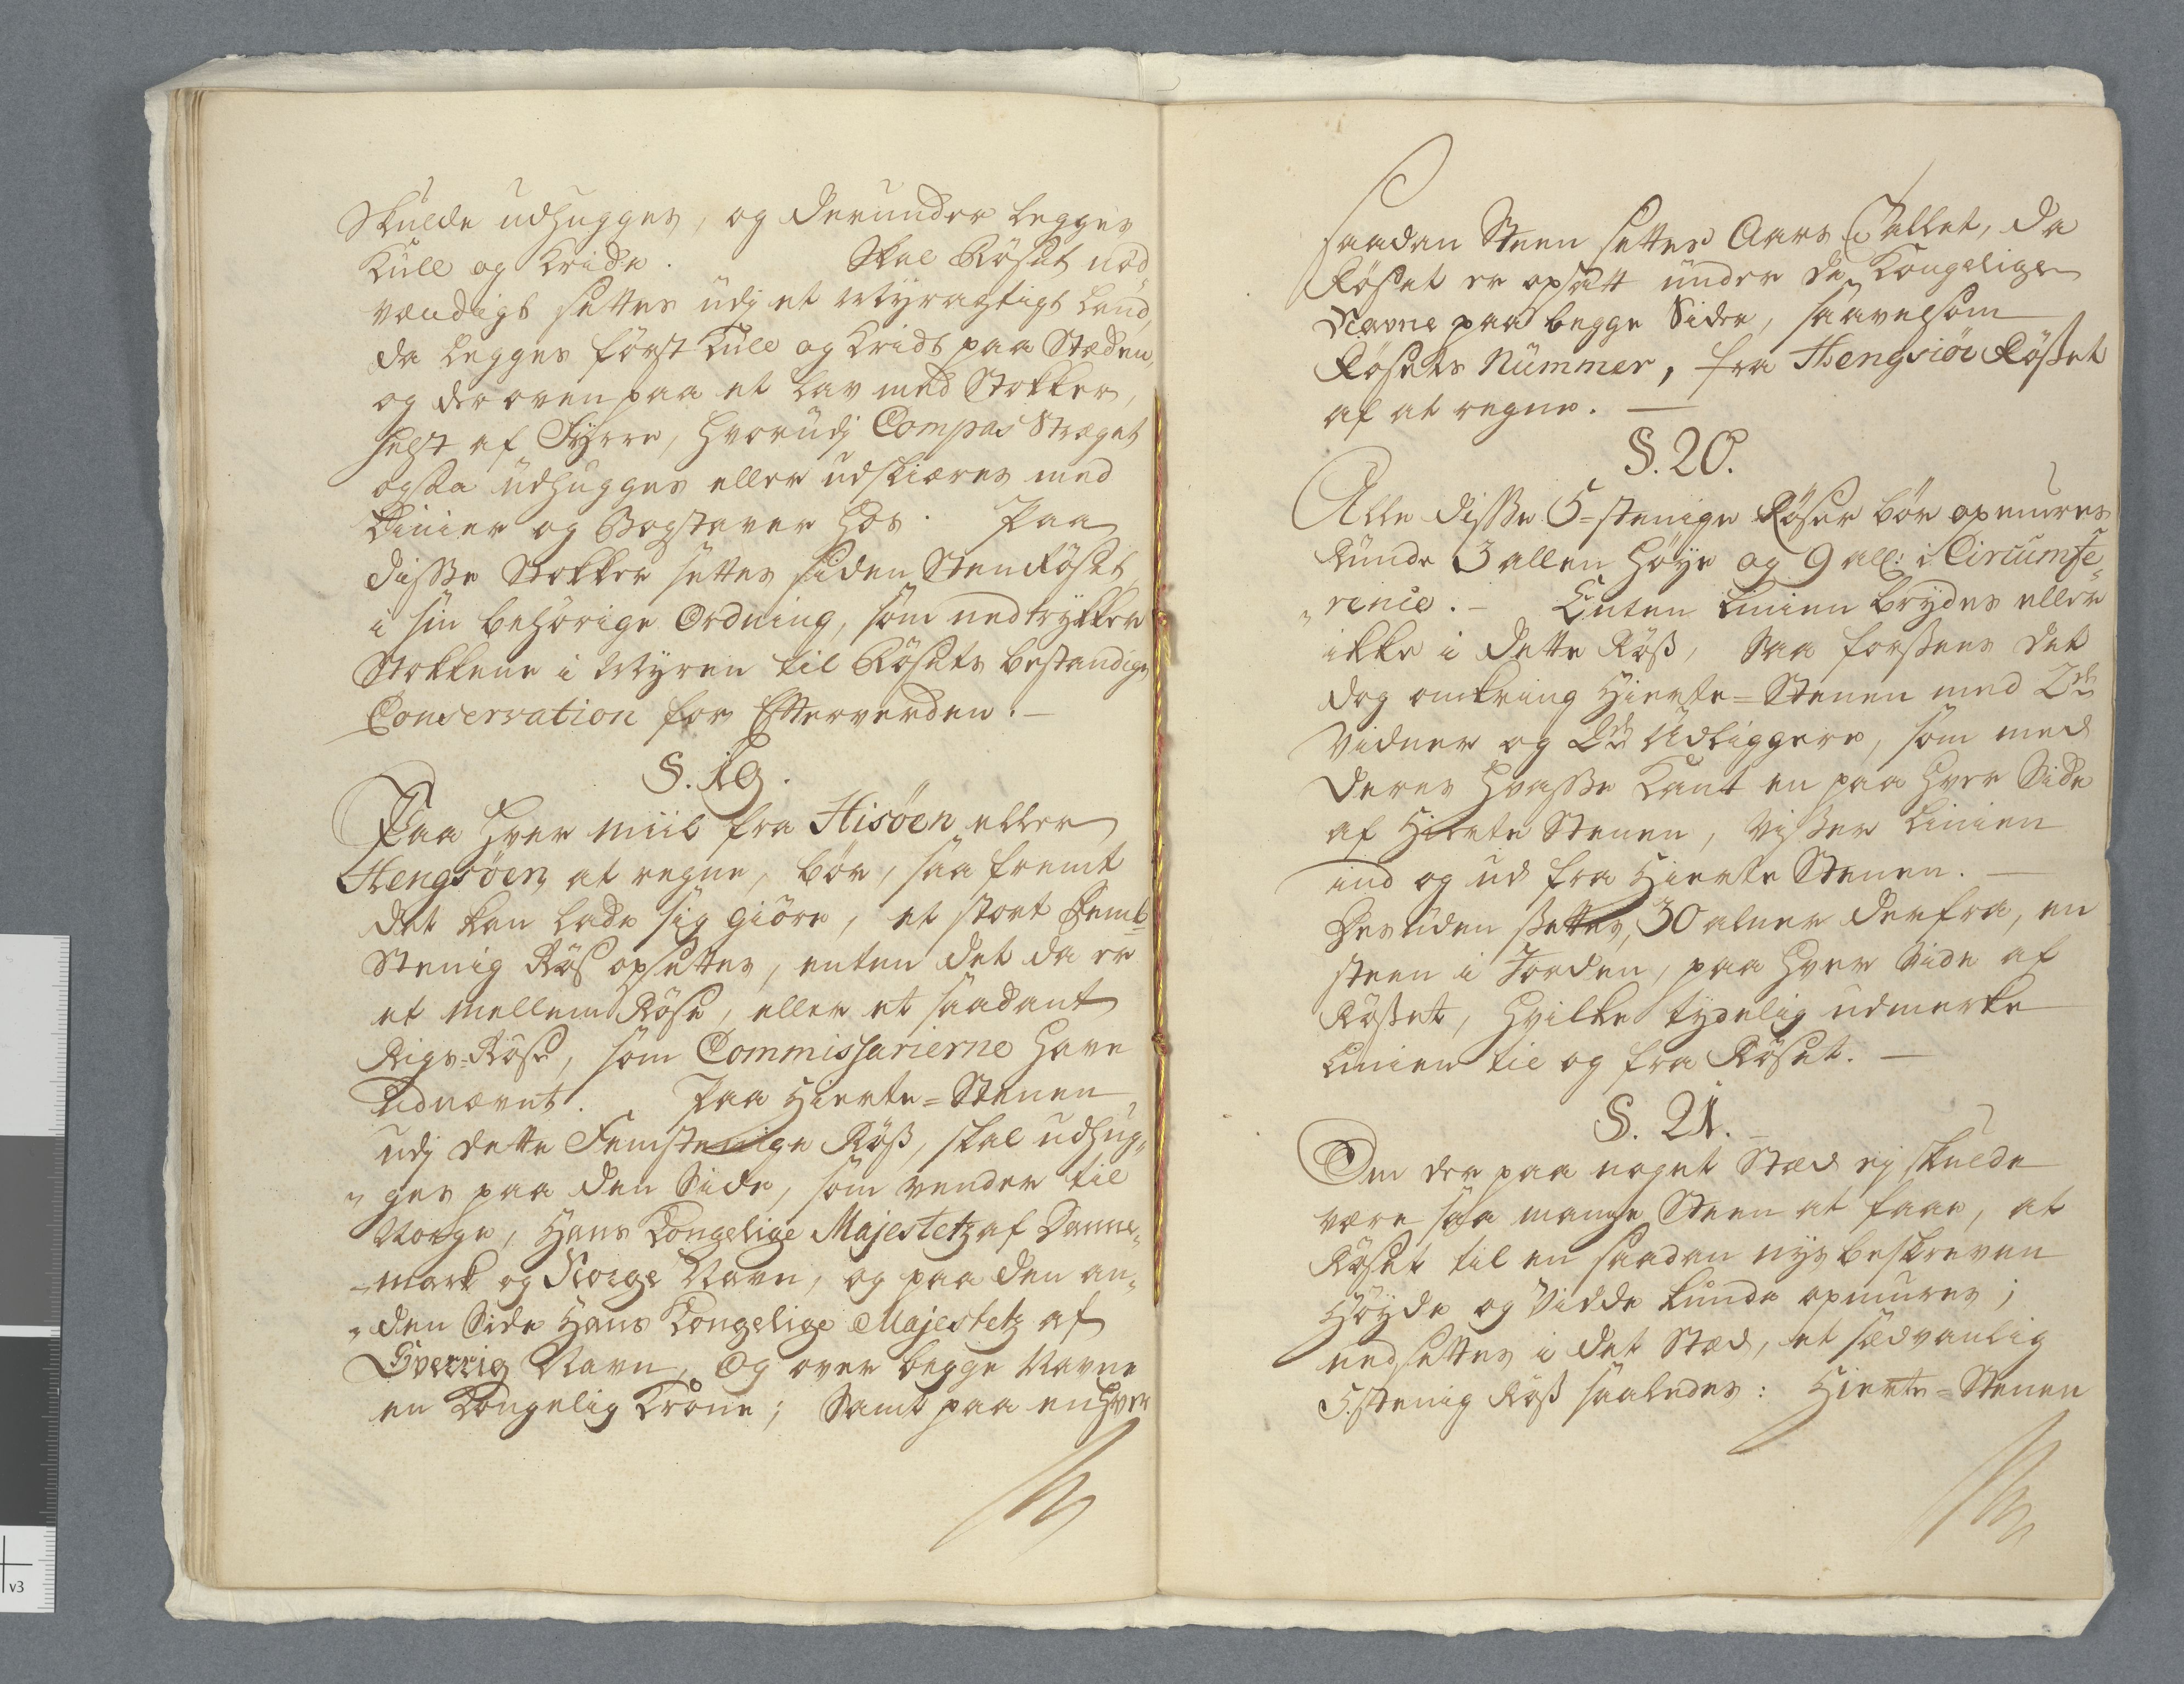 Skulde udhugges, og derunder legges
Kull og Kride. Skal Röset nöd
vændigt settes udj et Myragtigt Land,
da legges först Kull og Kridt paa Stæden,
og der oven paa et lav med Stokker,
helst af Fyrre, hvorudj Compas Stræget
ogsaa udhugges eller udskiæres med
Linier og Bogstaver hos. Paa
disse Stokker settes siden SteenRöset
i sin behörige Ordning, som nedtrykker
Stokkene i Myren til Rösets bestandige
Conservation for Efterverden. —
§. 19.
Paa hver Miil fra Hisöen eller
Hengsöen at regne, bör, saa fremt
det kan lade sig giöre, et stort Femb
Stenig Rös opsettes, enten det da er
et mellem Röse, eller et saadant
Rigs-Röse, som Commissarierne have
udnævnt. Paa Hierte-Stenen
udj dette Femstenige Röss, skal udhug„
„ges paa den Side, som vender til
Norge, Hans Kongelige Majestetz af Danne„
„mark og Norge Navn, og paa den an„
„den Side Hans Kongelige Majestetz af
Sverrig Navn, Og over begge Navne
en Kongelig Krone; Samt paa enhver
saadan Steen settes Aars Tallet, da
Röset er opsatt under de Kongelige
Navne paa begge Sider, saavelsom
Rösets Nummer, fra Hengsiöe Rösset
af at regne. —
§. 20.
Alle disse 5-stenige Röser bör opmures
Runde 3 allen höye og 9 all: i Circumfe„
„rence. — Enten Linien brydes eller
ikke i dette Röss, Saa forsees det
dog omkring Hierte-Stenen med 2de
Vidner og 2de Udliggere, som med
deres hvasse Kant en paa hver Side
af Hierte Stenen, Visser Linien
ind og ud fra Hierte Stenen. —
Desuden settes, 30 alner derfra, en
steen i Jorden, paa hver Side af
Rösset, hvilke tydelig udmerke
Linien til og fra Röset. —
§. 21.
Om der paa noget Stæd ej skulde
være saa mange Steen at faae, at
Röset til en saadan nys beskreven
Höyde og Vidde kunde opmures;
nedsettes i det Stæd, et sædvanlig
5stenig Röss saaledes: Hierte-Stenen